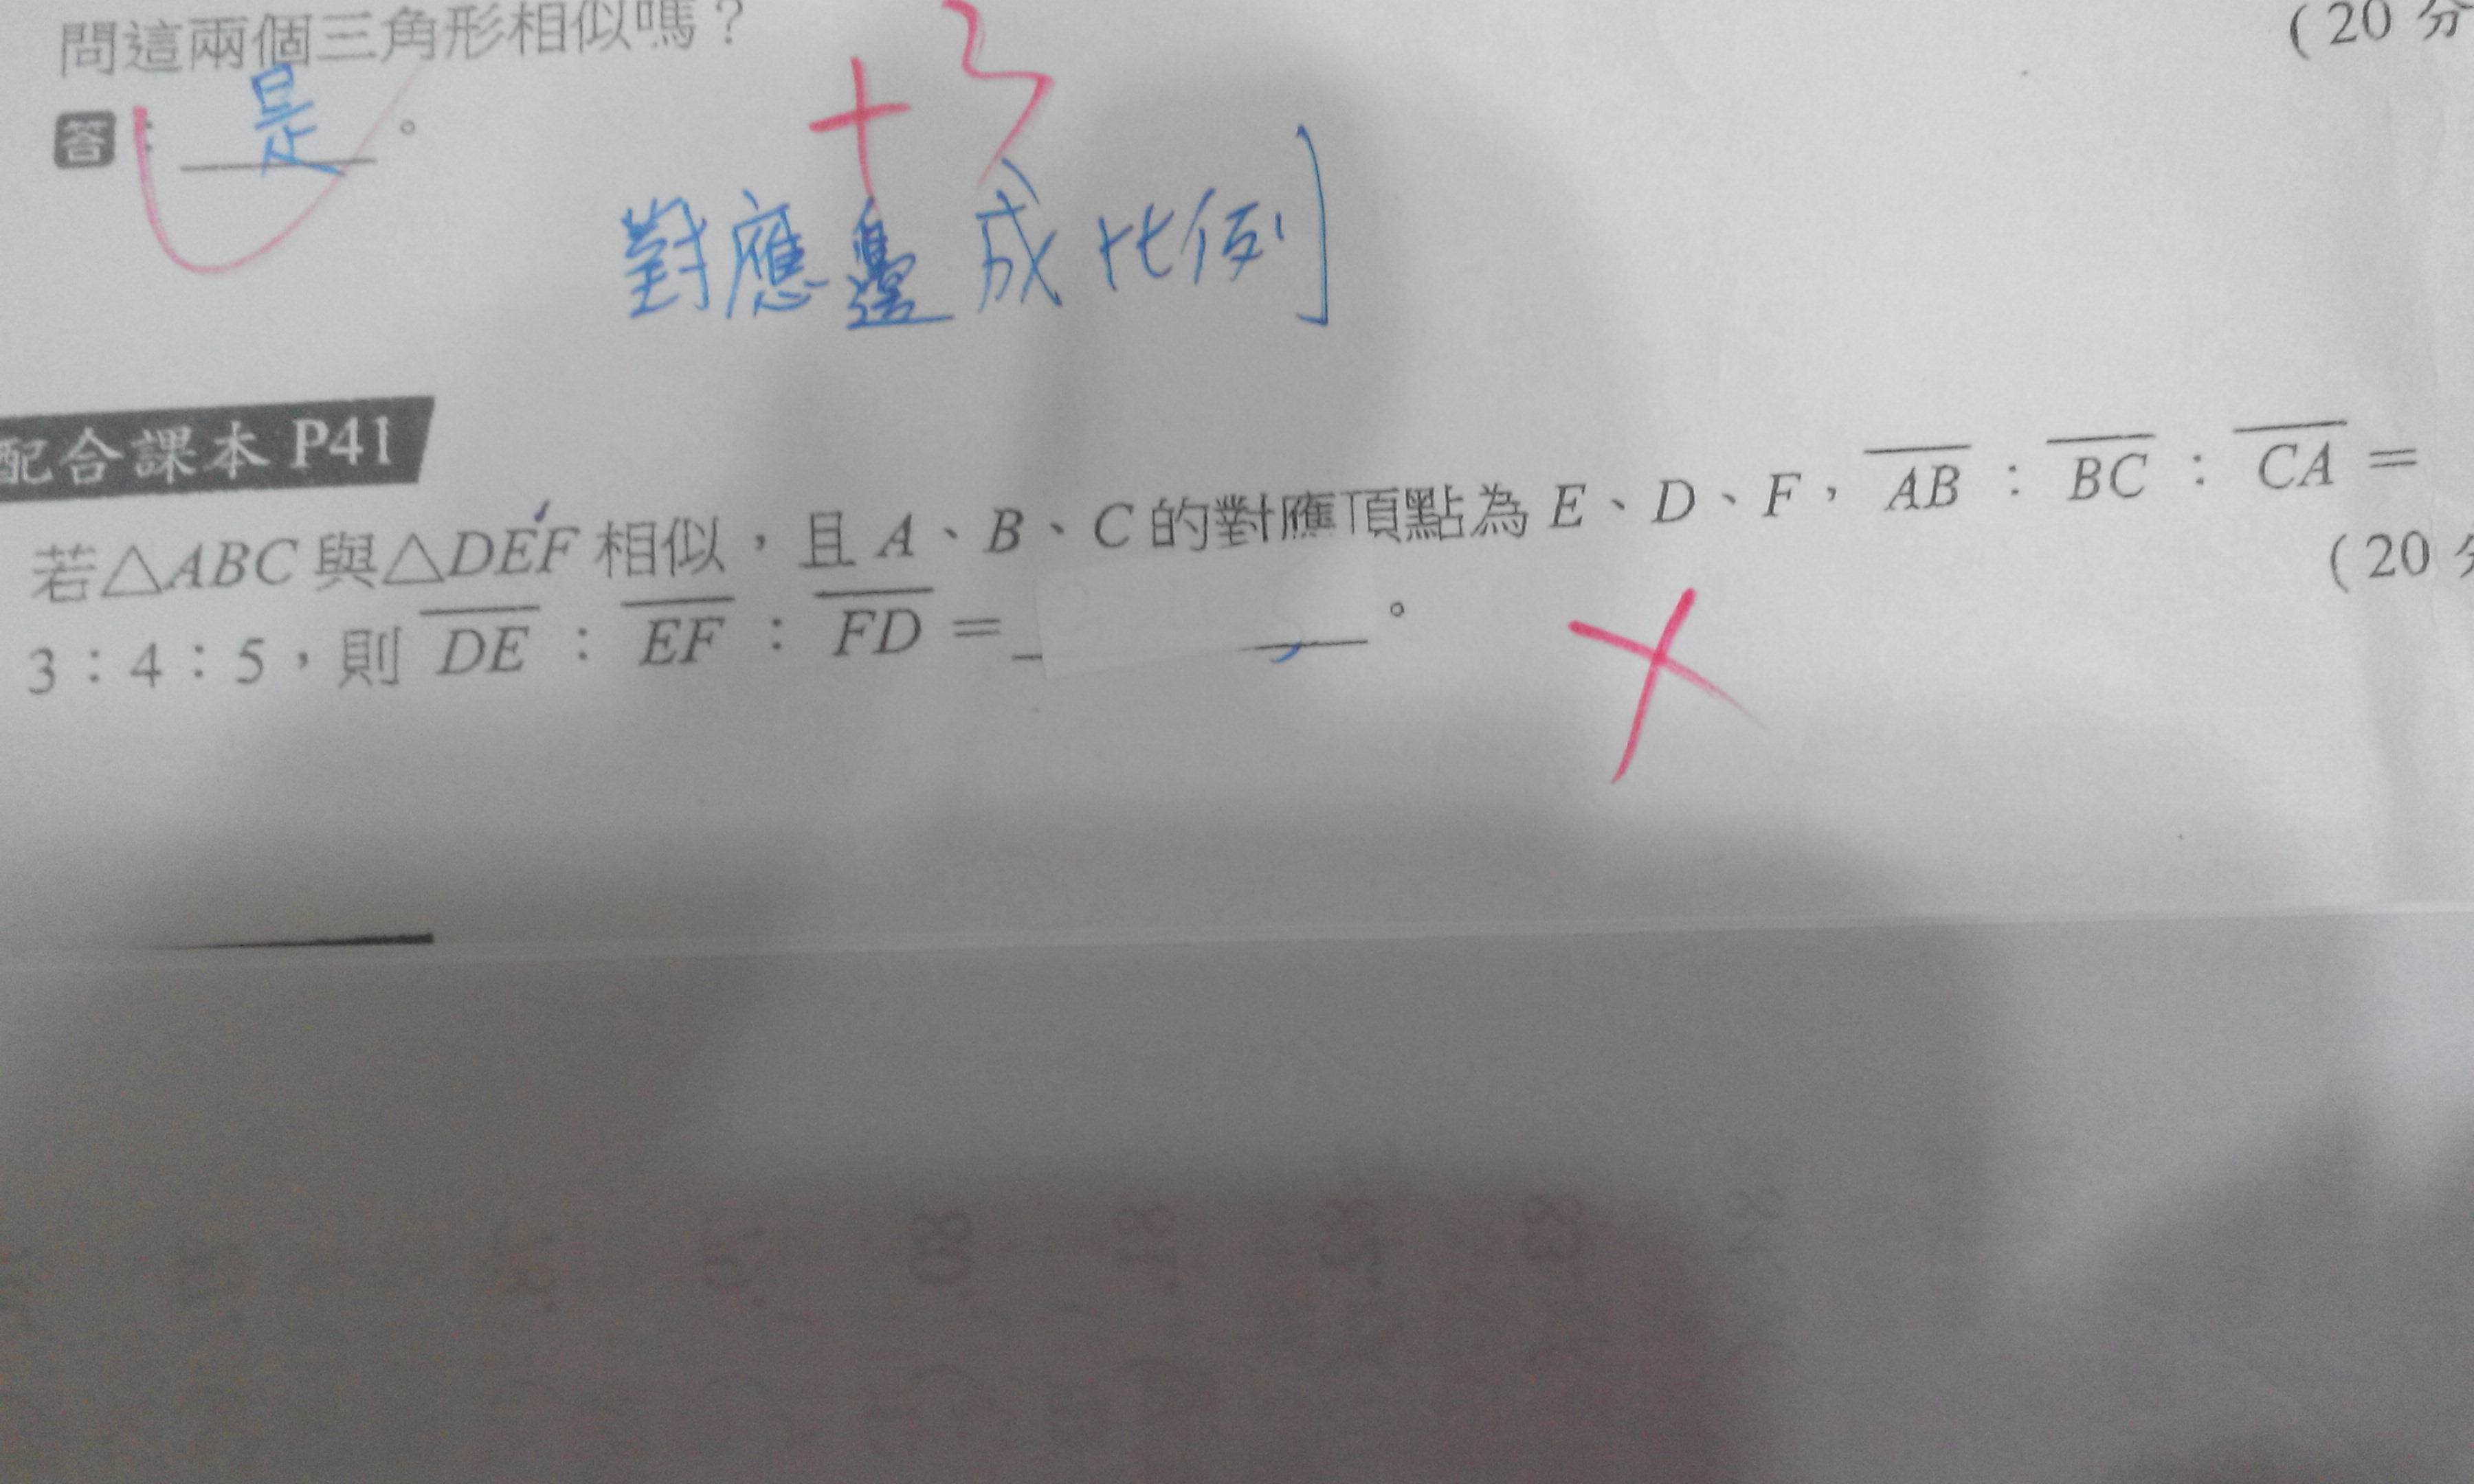 問這兩個三角形相似嗎？
(20分
答：是。
+3
對應邊成比例
配合課本 P41
若△ABC與△DEF相似，且A、B、C的對應頂點為E、D、F，AB：BC：CA＝
3：4：5，則DE：EF：FD＝ 。
(20分
80.
81.
82.
83.